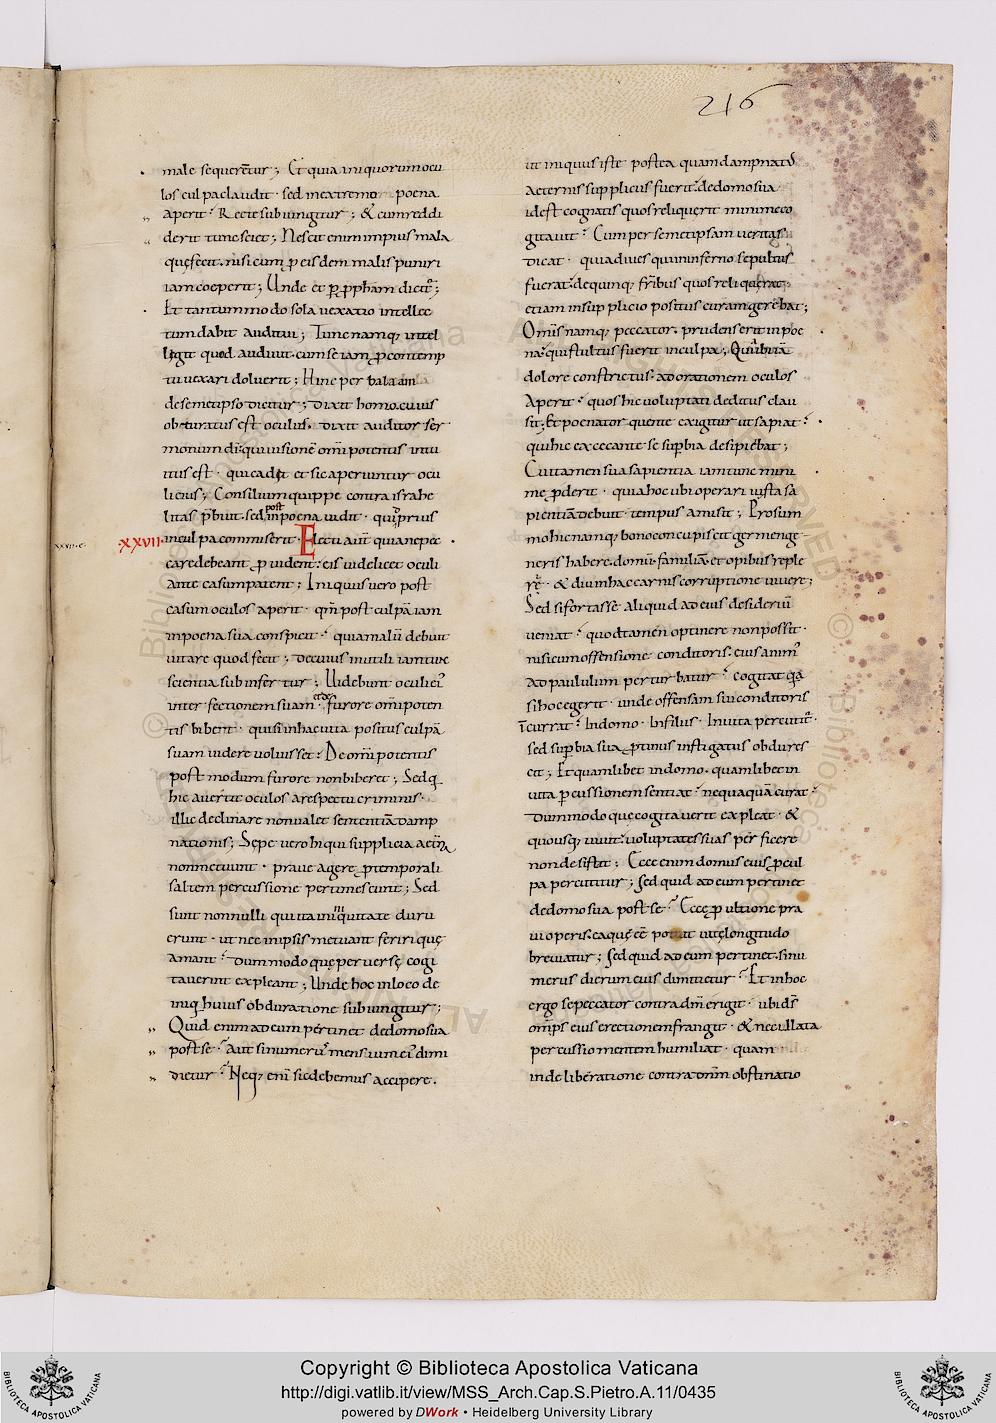 216
male sequerent̅ur ; Et quia iniquorum ocu
los culpa claudit · sed in extremo poena
aperit · Recte subiungitur ; & cum reddi
derit tunc sciet ; Nescit enim impius mala
quę fecit. nisi cum p̱ eisdem malis puniri
iam coeperit ; Unde et p̱ p̱ph&am dicit᷑ ;
Et tantummodo sola uexatio intellec
tum dabit auditui ; Tunc namq; intel
ligit quod audiuit. cum se iam ꝓ contemp
tu uexari doluerit ; Hinc per balaam
de semetipso dicitur ; dixit homo. cuius
obturatus est oculus. dixit auditor ser
monum dı̅. qui uisionē omı̅potentis intu
itus est · qui cadit et sic aperiuntur ocu
li eius ; Consilium quippe contra israhe
litas p̄buit. sed post in poena uidit · quı̅d prius
XXVII in culpa commiserit · Electi aut̅ quia ne pec
care debeant ꝓuident. eis uidelicet oculi
ante casum patent ; Iniquus uero post
casum oculos aperit · qm̅ post culpā iam
in poena sua conspicit · quia malū debuit
uitare quod fecit ; De cuius inutili iam tunc
scientia subinfertur ; Uidebunt oculi eı̅
interfectionem suam · et de furore omı̅poten
tis bibent · qui si in hac uita positus culpā
suam uidere uoluisset · De omı̅potentis
postmodum furore non biberet ; Sed q̱
hic auertit oculos a respectu criminis ·
illic declinare non ualet sententiā damp
nationis ; Sępe uero hi qui supplicia aet̅na
non metuunt · praue agere ꝓ temporali
saltem percussione pertimescunt ; Sed
sunt nonnulli qui ita in iniquitate duru
erunt · ut nec in ipsis metuant feriri quę
amant · dummodo quę peruersę cogi
tauerint expleant ; Unde hoc in loco de
iniq̱ huius obduratione subiungitur ;
Quid enim ad eum pertinet de domo sua
post se · Aut si numerus̅ mensium eı̅ dimi
dietur · Neq; enı̅ sic debemus accipere .
ut iniquus iste postea quam dampnatus
aeternis suppliciis fuerit. de domo sua
id est cognatis quos reliquerit minime co
gitauit · Cum per semetipsam ueritas
dicat · quia diues qui in inferno sepultus
fuerat. de quinq; fr̅ibus quos reliquerat.
etiam in supplicio positus curam gerebat ;
Omı̅s namq; peccator. prudens erit in poe
na. qui stultus fuerit in culpa ;
dolore constrictus. ad orationem oculos
aperit · quos hic uoluptati deditus clau
sit ;
qui hic excecante se sup̱bia desipiebat ;
Cui tamen sua sapientia iam tunc mini
me ꝓderit · quia hoc ubi operari iuxta sa
pientiā debuit tempus amisit ;
mo hic namq; bono concupiscit germen ge
neris habere. domū. familiā. et opibus reple
ri · & diu in hac carnis corruptione uiuere ;
Sed si fortasse aliquid ad eius desideriū
ueniat · quod tamen optinere non possit ·
nisi cum offensione conditoris. eius anim᷑
ad paululum perturbatur · cogitat q̱a
si hoc egerit unde offensam sui conditoris
incurrat · In domo · In filiis · In uita percutit᷑ ·
sed sup̱bia sua ꝓtinus instigatus obdures
cit ; Et quamlibet in domo. quamlibet in
uita p̱cussionem sentiat · nequaquā curat ·
dummodo que cogitauerit expleat · &
quousq; uiuit. uoluptates suas perficere
non desistit ; Ecce enim domus eius p̱ cul
pa percutitur ; Sed quid ad eum pertinet
de domo sua post se · Ecce p̱ ultione pra
ui operis. ea quę eē potuit uitę longitudo
breuiatur ; Sed quid ad eum pertinet. si nu
merus dierum eius dimitietur · Et in hoc
ergo se peccator contra dm̅ erigit · ubi ds̅
omı̅ps eius erectionem frangit · & nec illata
percussio mentem humiliat · quam
in deliberatione contra dnm̅ obstinatio
Copyright © Biblioteca Apostolica Vaticana
http://digi.vatlib.it/view/MSS_Arch.Cap.S.Pietro.A.11/0435
powered by DWork • Heidelberg University Library